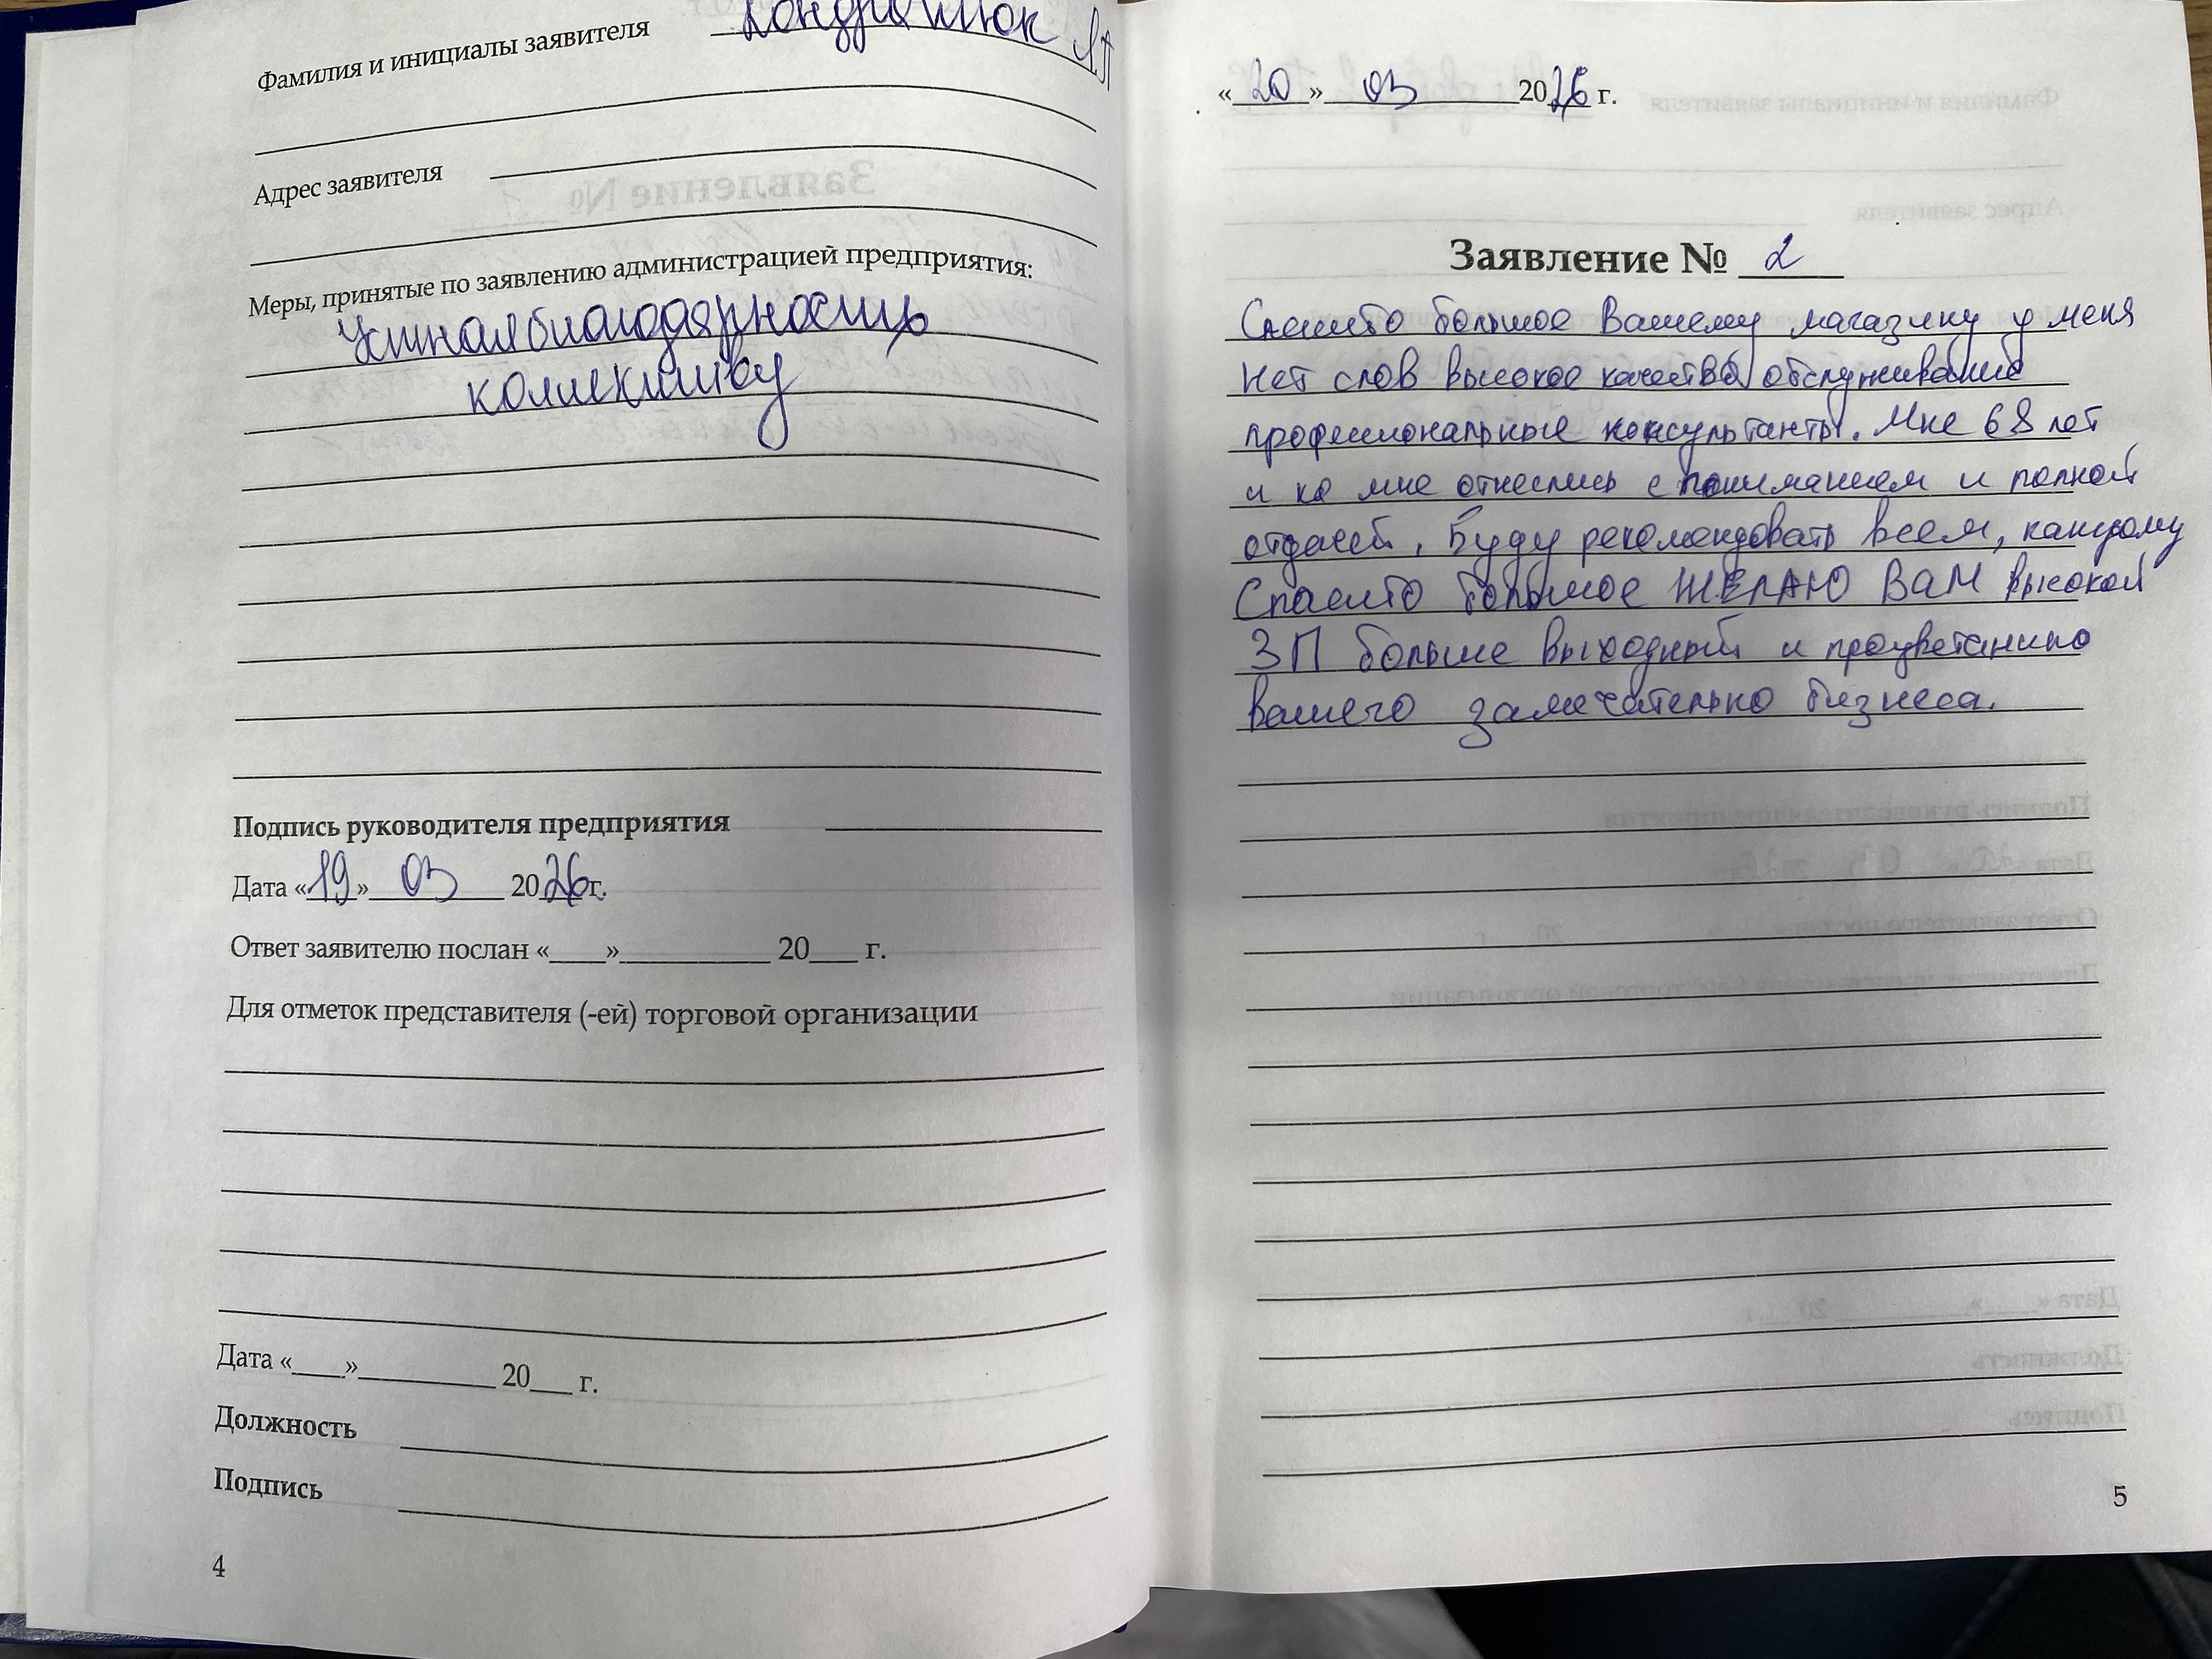 Фамилия и инициалы заявителя Кондратюк
Адрес заявителя
Меры, принятые по заявлению администрацией предприятия:
Устная благодарность
коллективу
Подпись руководителя предприятия
Дата «19» 03 2026 г.
Ответ заявителю послан «____»__________ 20___ г.
Для отметок представителя (-ей) торговой организации
Дата «____»__________ 20___ г.
Должность
Подпись
4
«20» 03 2026 г.
Заявление № 2
Спасибо большое Вашему магазину у меня
Нет слов высокое качество обслуживание
профессиональные консультанты. Мне 68 лет
и ко мне отнеслись с пониманием и полной
отдачей. Буду рекомендовать всем, каждому
Спасибо большое ЖЕЛАЮ ВАМ высокой
ЗП больше выходный и процветанию
вашего замечательно бизнеса.
5